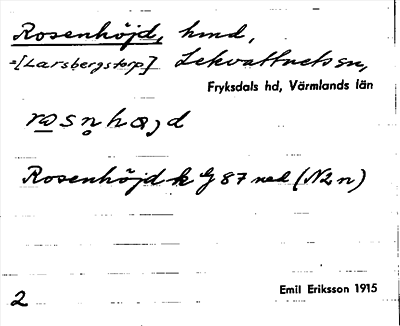 Rosenhöjd, hmd,
=[Larsbergstorp] Lekvattnets sn,
Fryksdals hd, Värmlands län
Rosenhöjd k G 87 ned (N2n)
2 Emil Eriksson 1915